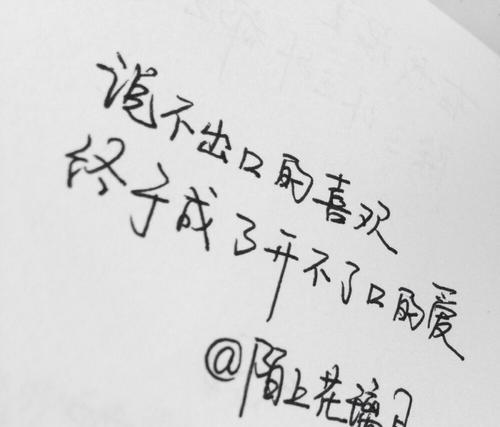 说不出口的喜欢
终于成了开不了口的爱
@陌上花